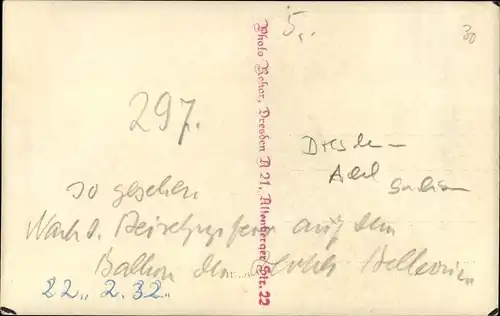 5.
30
297.
Photo Rehor, Dresden A 21, Altenberger Str. 22
Dresden
Adel
Sachsen
so gesehen
Nach d. auf dem
Balkon des Hotels Bellevue
22. 2. 32.